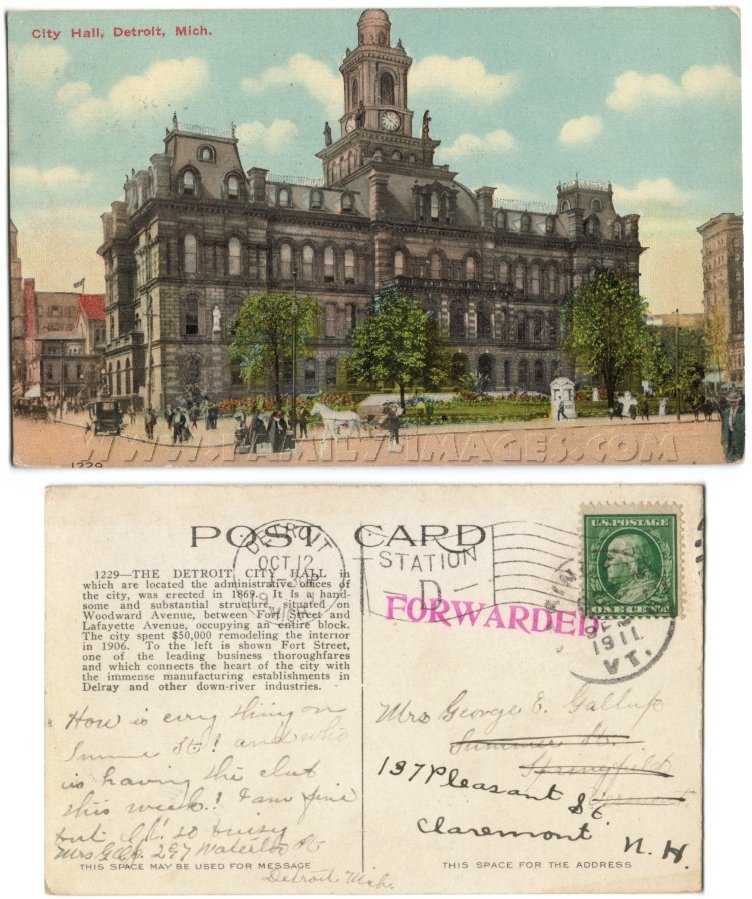 City Hall, Detroit, Mich.
WWW.FAMILY-IMAGES.COM
1229
POST CARD
DETROIT
OCT 12
MICH.
STATION
D
U.S. POSTAGE
ONE CENT
1911
VT.
FORWARDED
1229—THE DETROIT CITY HALL in
which are located the administrative offices of
the city, was erected in 1869. It is a hand-
some and substantial structure, situated on
Woodward Avenue, between Fort Street and
Lafayette Avenue, occupying an entire block.
The city spent $50,000 remodeling the interior
in 1906. To the left is shown Fort Street,
one of the leading business thoroughfares
and which connects the heart of the city with
the immense manufacturing establishments in
Delray and other down-river industries.
How is every thing on
St! and who
is having the club
this week! I am fine
but Oh! so busy
Mrs 297 Waterloo St
Detroit Mich.
THIS SPACE MAY BE USED FOR MESSAGE
Mrs George E. Gallup
Summer St.
Springfield
Vermont
137 Pleasant St.
Claremont N. H.
THIS SPACE FOR THE ADDRESS